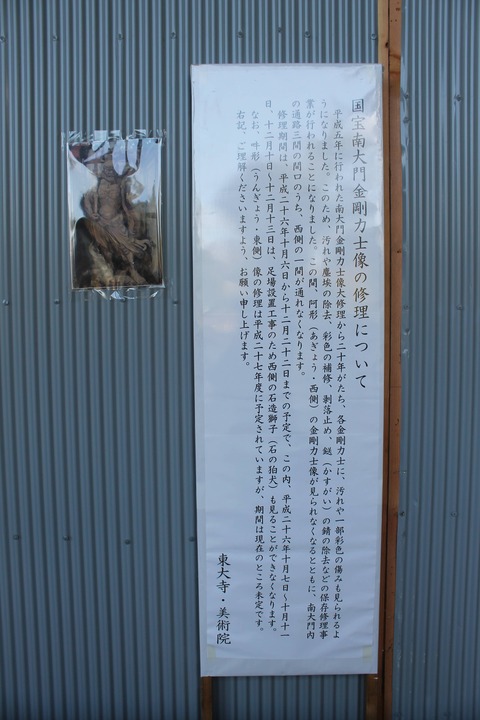 国宝南大門金剛力士像の修理について
平成五年に行われた南大門金剛力士像大修理から二十年がたち、各金剛力士に、汚れや一部彩色の傷みも見られるよ
うになりました。このため、汚れや塵埃の除去、彩色の補修、剥落止め、鎹（かすがい）の錆の除去などの保存修理事
業が行われることになりました。この間、阿形（あぎょう・西側）の金剛力士像が見られなくなるとともに、南大門内
の通路三間の間口のうち、西側の一間が通れなくなります。
修理期間は、平成二十六年十月六日から十二月二十二日までの予定で、この内、平成二十六年十月七日～十月十一
日、十二月十日～十二月十三日は、足場設置工事のため西側の石造獅子（石の狛犬）も見ることができなくなります。
なお、吽形（うんぎょう・東側）像の修理は平成二十七年度に予定されていますが、期間は現在のところ未定です。
右記、ご理解くださいますよう、お願い申し上げます。
東大寺・美術院